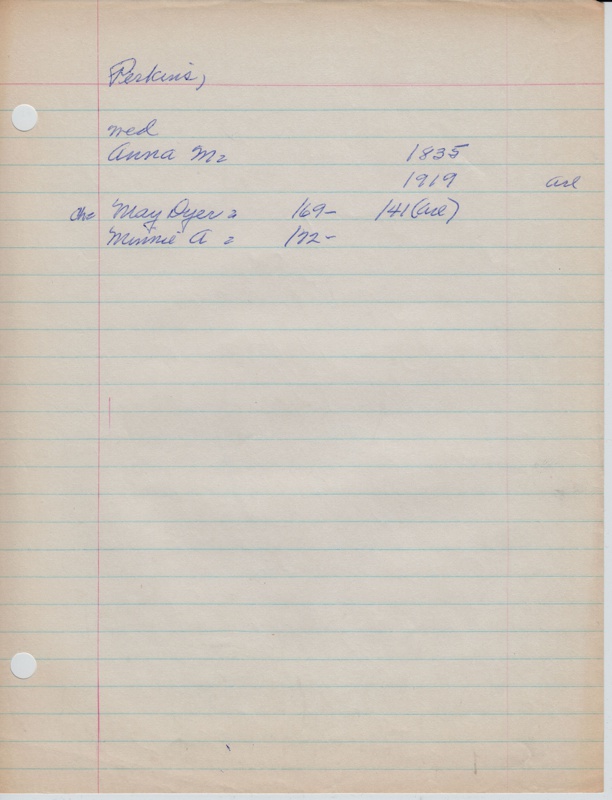 Perkins,
med
Anna M= 1835
1919 arl
ch= May Dyer= 169- 141(arl)
Minnie A = 172-